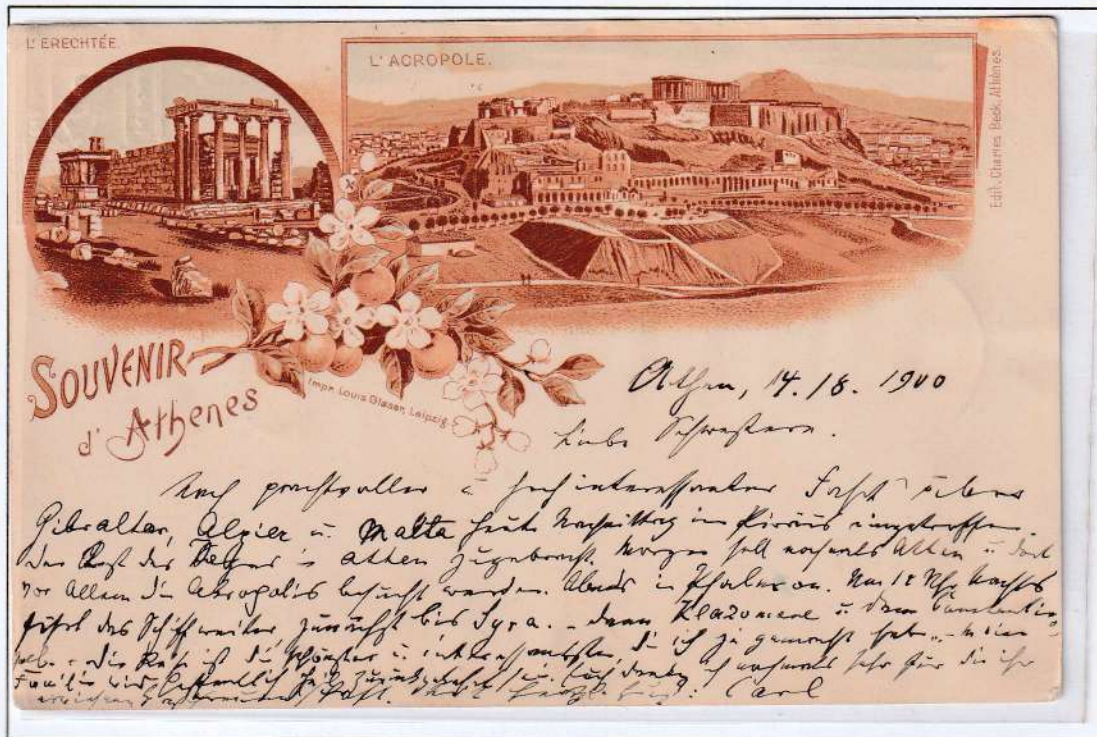 L'ERECHTÉE.
L'ACROPOLE.
Edit. Charles Beck, Athènes.
SOUVENIR
d'Athènes
Impr. Louis Glaser, Leipzig
Athen, 14./8. 1900
Liebe Schwestern.
Nach prachtvoller u hochinteressanter Fahrt über
Gibraltar, Algier u. Malta heute Nachmittag im Piräus eingetroffen.
Den Rest des Tages in Athen zugebracht. Morgen soll nochmals Athen u dort
vor Allem die Akropolis besucht werden. Abends in Phaleron. Um 12 Uhr Nachts
fährt das Schiff weiter, zunächst bis Syra. - dann Klazomene u dann Constantin-
Die Reise ist die schönste u. interessanteste die ich je gemacht habe.
Familie wird hoffentlich zurückgekehrt sein. Euch danke ich nochmals sehr für die
Carl